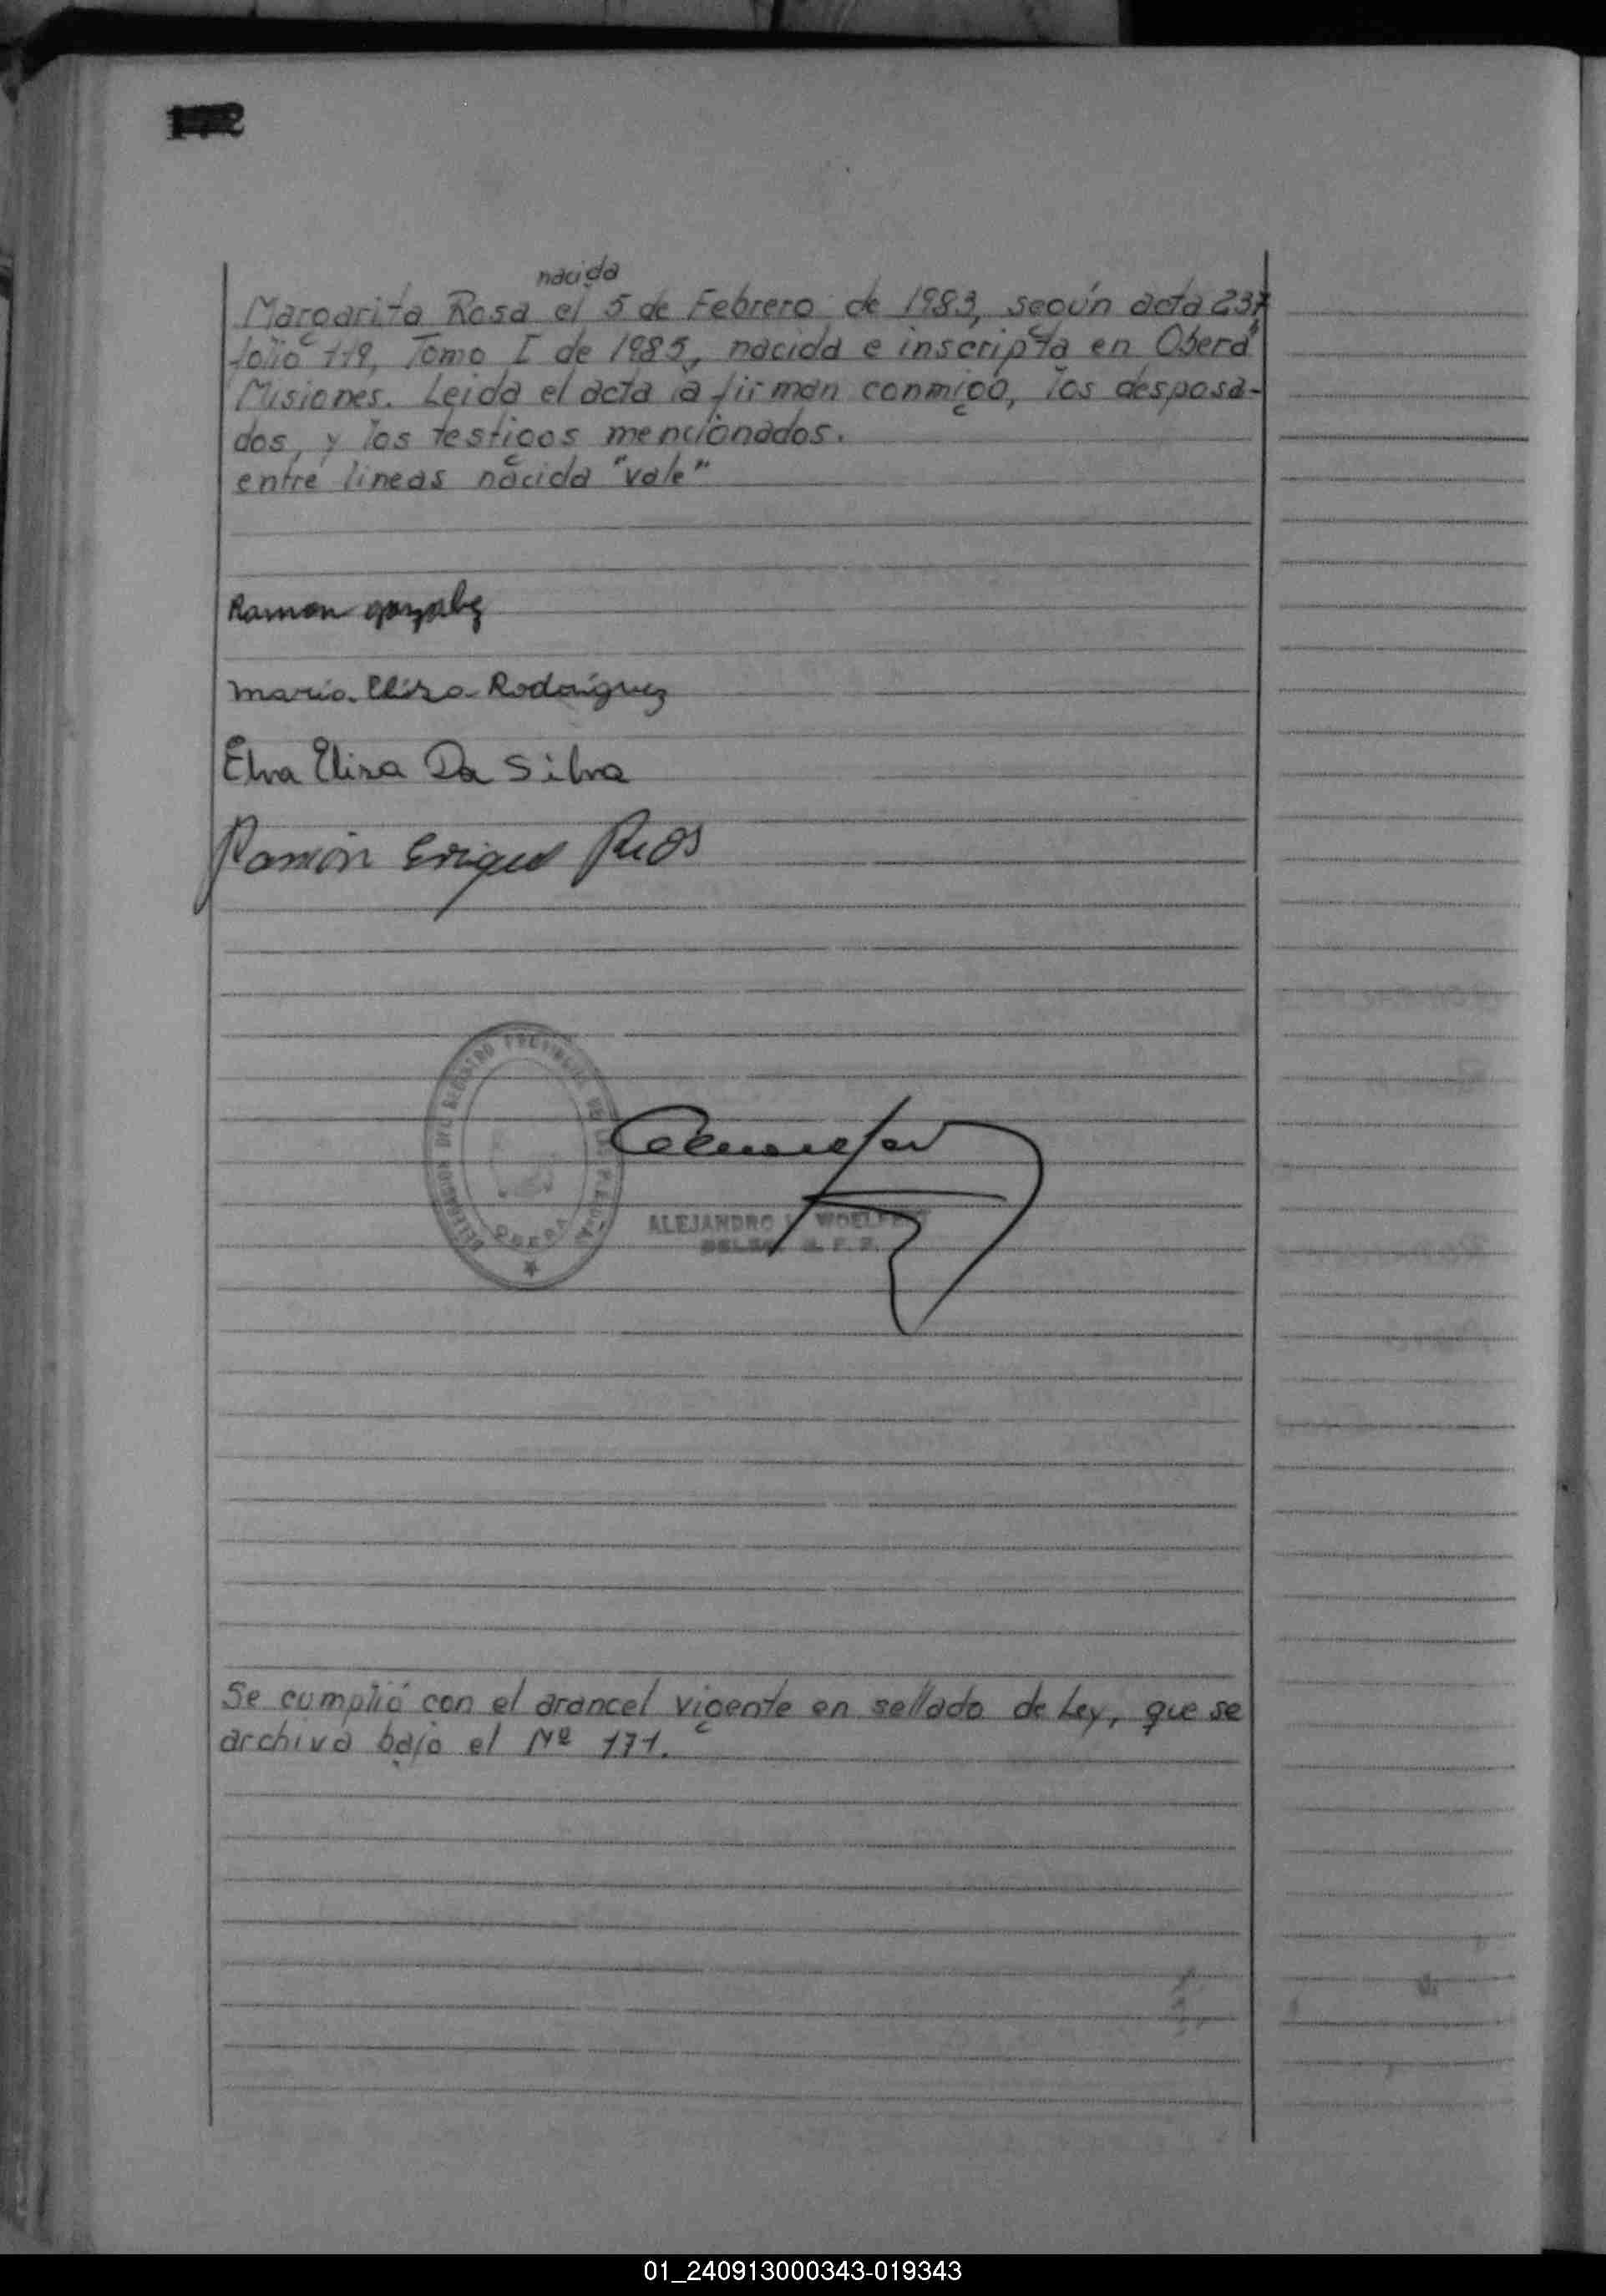 nacida
Margarita Rosa el 5 de Febrero de 1983, según acta 237
folio 119, Tomo I de 1985, nacida e inscripta en Oberá
Misiones. Leida el acta la firman conmigo, los desposa-
dos, y los testigos mencionados.
entre lineas nacida "vale"
Ramon gonzalez
Maria Elisa Rodriguez
Elva Elisa Da Silva
Ramón Enrique Rios
DELEGACION DEL REGISTRO PROVINCIAL DE LAS PERSONAS
OBERA
ALEJANDRO
Se cumplió con el arancel vigente en sellado de Ley, que se
archiva bajo el Nº 171.
01_240913000343-019343